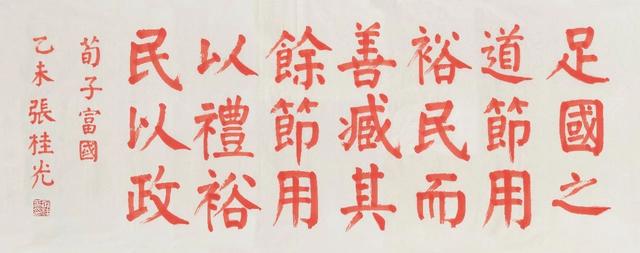 足國之
道節用
裕民而
善臧其
餘節用
以禮裕
民以政
荀子富國
乙未張桂光